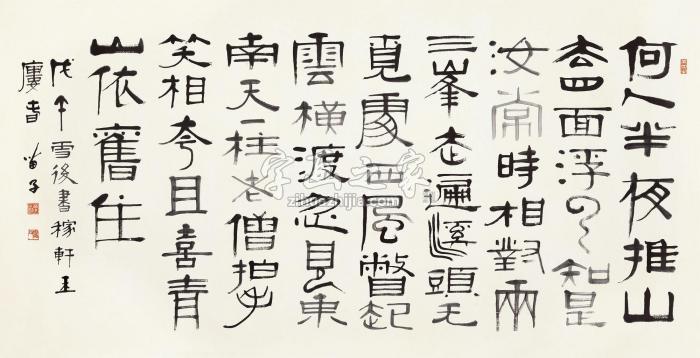 何人半夜推山
去四面浮云知是
汝常時相對兩
三峯走遍溪頭无
覓處西風瞥起
雲橫渡忽見東
南天一柱老僧拍手
笑相夸且喜青
山依舊住
戊午雪後書稼軒玉
樓春 苗子
字画之家
zihuazhijia.com